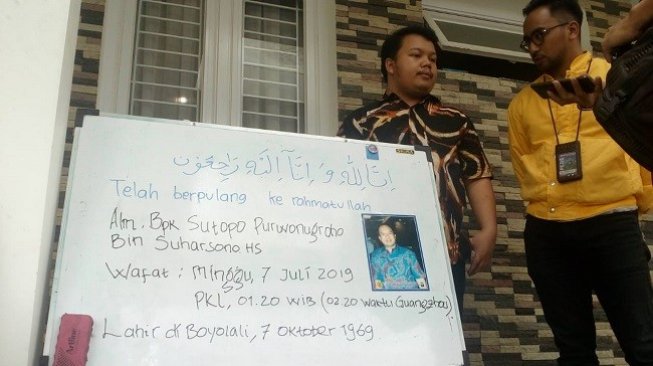 إِنَّا لِلّٰهِ وَإِنَّآ إِلَيْهِ رَاجِعُوْنَ
Telah berpulang ke rahmatullah
Alm. Bpk Sutopo Purwonugroho
Bin Suharsono HS
Wafat : Minggu, 7 Juli 2019
PKL, 01.20 WIB (02.20 waktu Guangzhou)
Lahir di Boyolali, 7 Oktober 1969
Artline